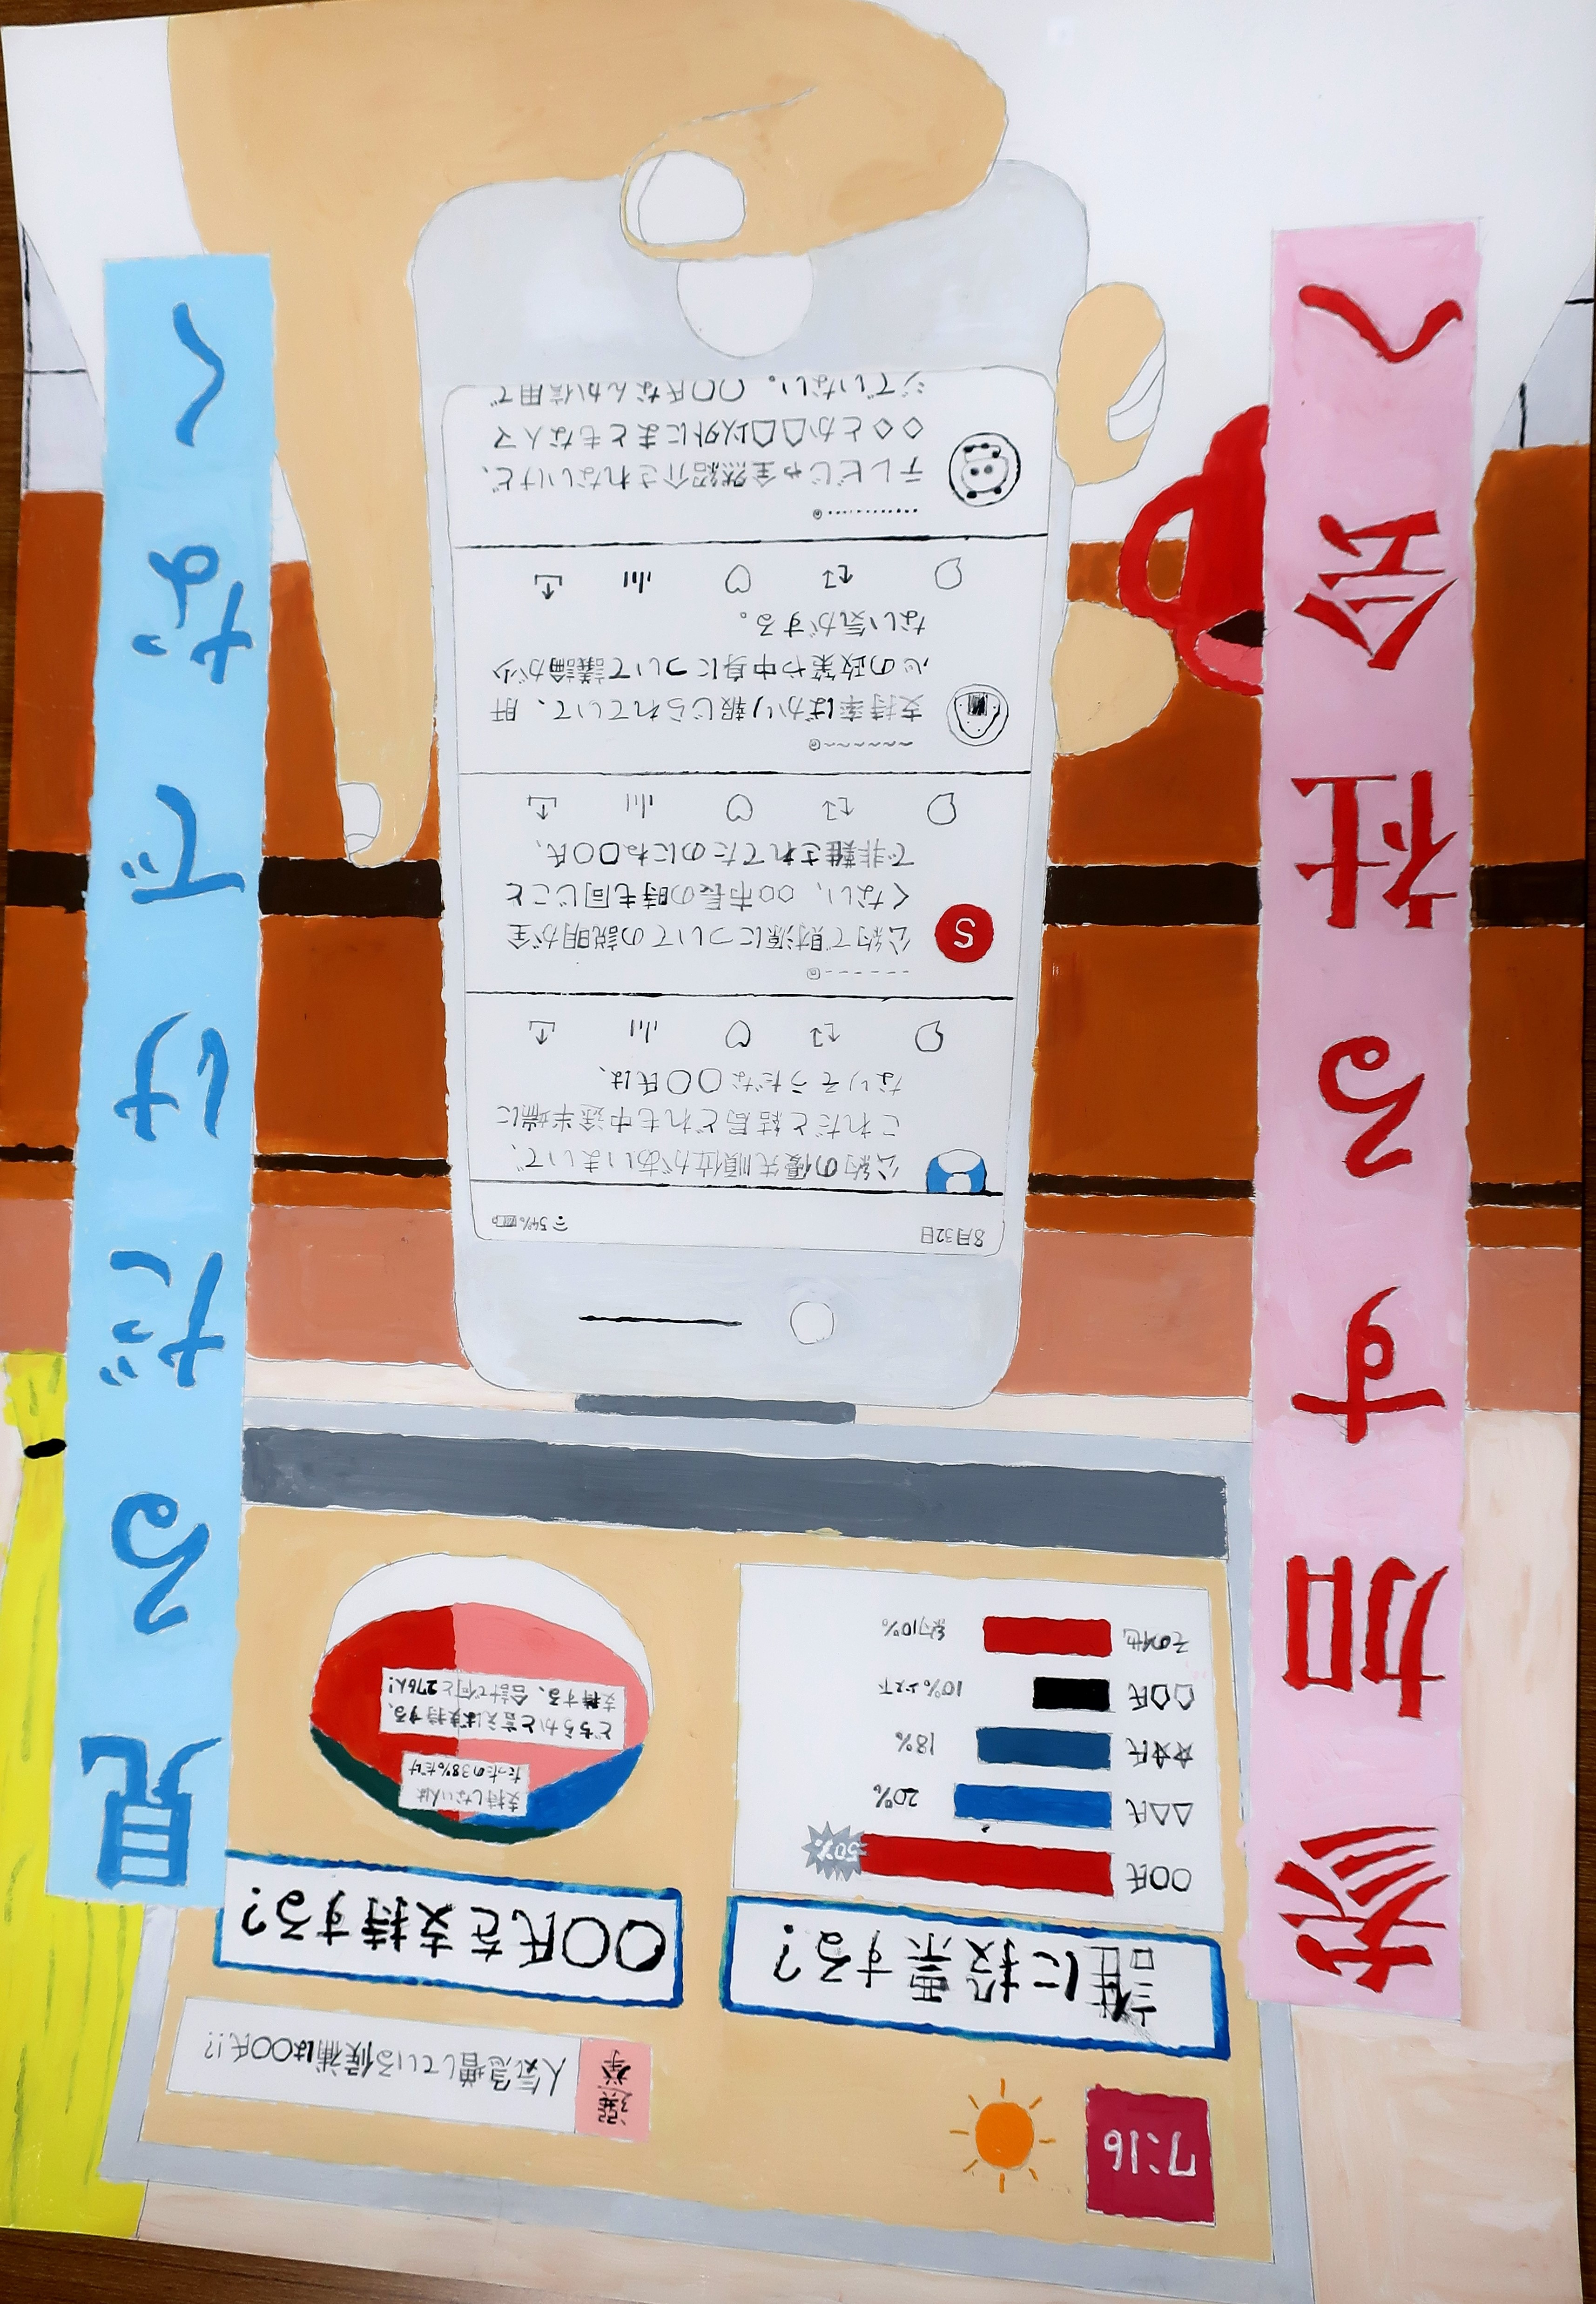 見るだけでなく
参加する社会へ
7:16
選挙
人気急増している候補は〇〇氏!?
誰に投票する?
〇〇氏 50%
△△氏 20%
☆☆氏 18%
⌂⌂氏 10%以下
その他 約10%
〇〇氏を支持する?
支持しない人は
たったの38%だけ
どちらかと言えば支持する、
支持する、合計で何と276人!
8月32日 54%
公約の優先順位があいまいで、
これだと結局どれも中途半端に
なりそうだな〇〇氏は、
S
公約で財源についての説明が全
くない、〇〇市長の時も同じこと
で非難されてたのにね〇〇氏、
支持率ばかり報じられていて、肝
心の政策や中身について議論が少
ない気がする。
テレビじゃ全然紹介されないけど、
◇◇とか⌂⌂以外にまともな人マ
ジでいない。〇〇氏なんか信用で